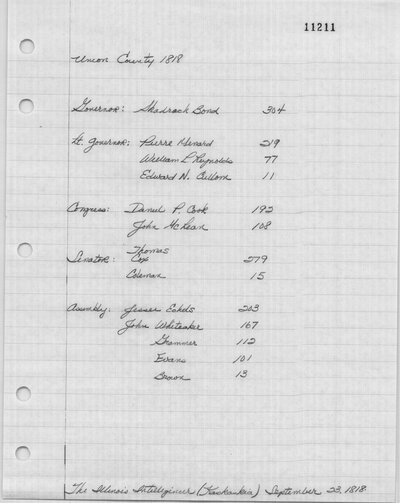 11211
Union County 1818
Governor: Shadrach Bond 304
Lt. Governor: Pierre Menard 219
William L Reynolds 77
Edward N. Cullom 11
Congress: Daniel P. Cook 192
John McLean 108
Thomas
Senator: Cox 279
Coleman 15
Assembly: Jesser Echols 203
John Whiteaker 167
Grammer 112
Evans 101
Brown 13
The Illinois Intelligincer (Kaskaskia) September 23, 1818